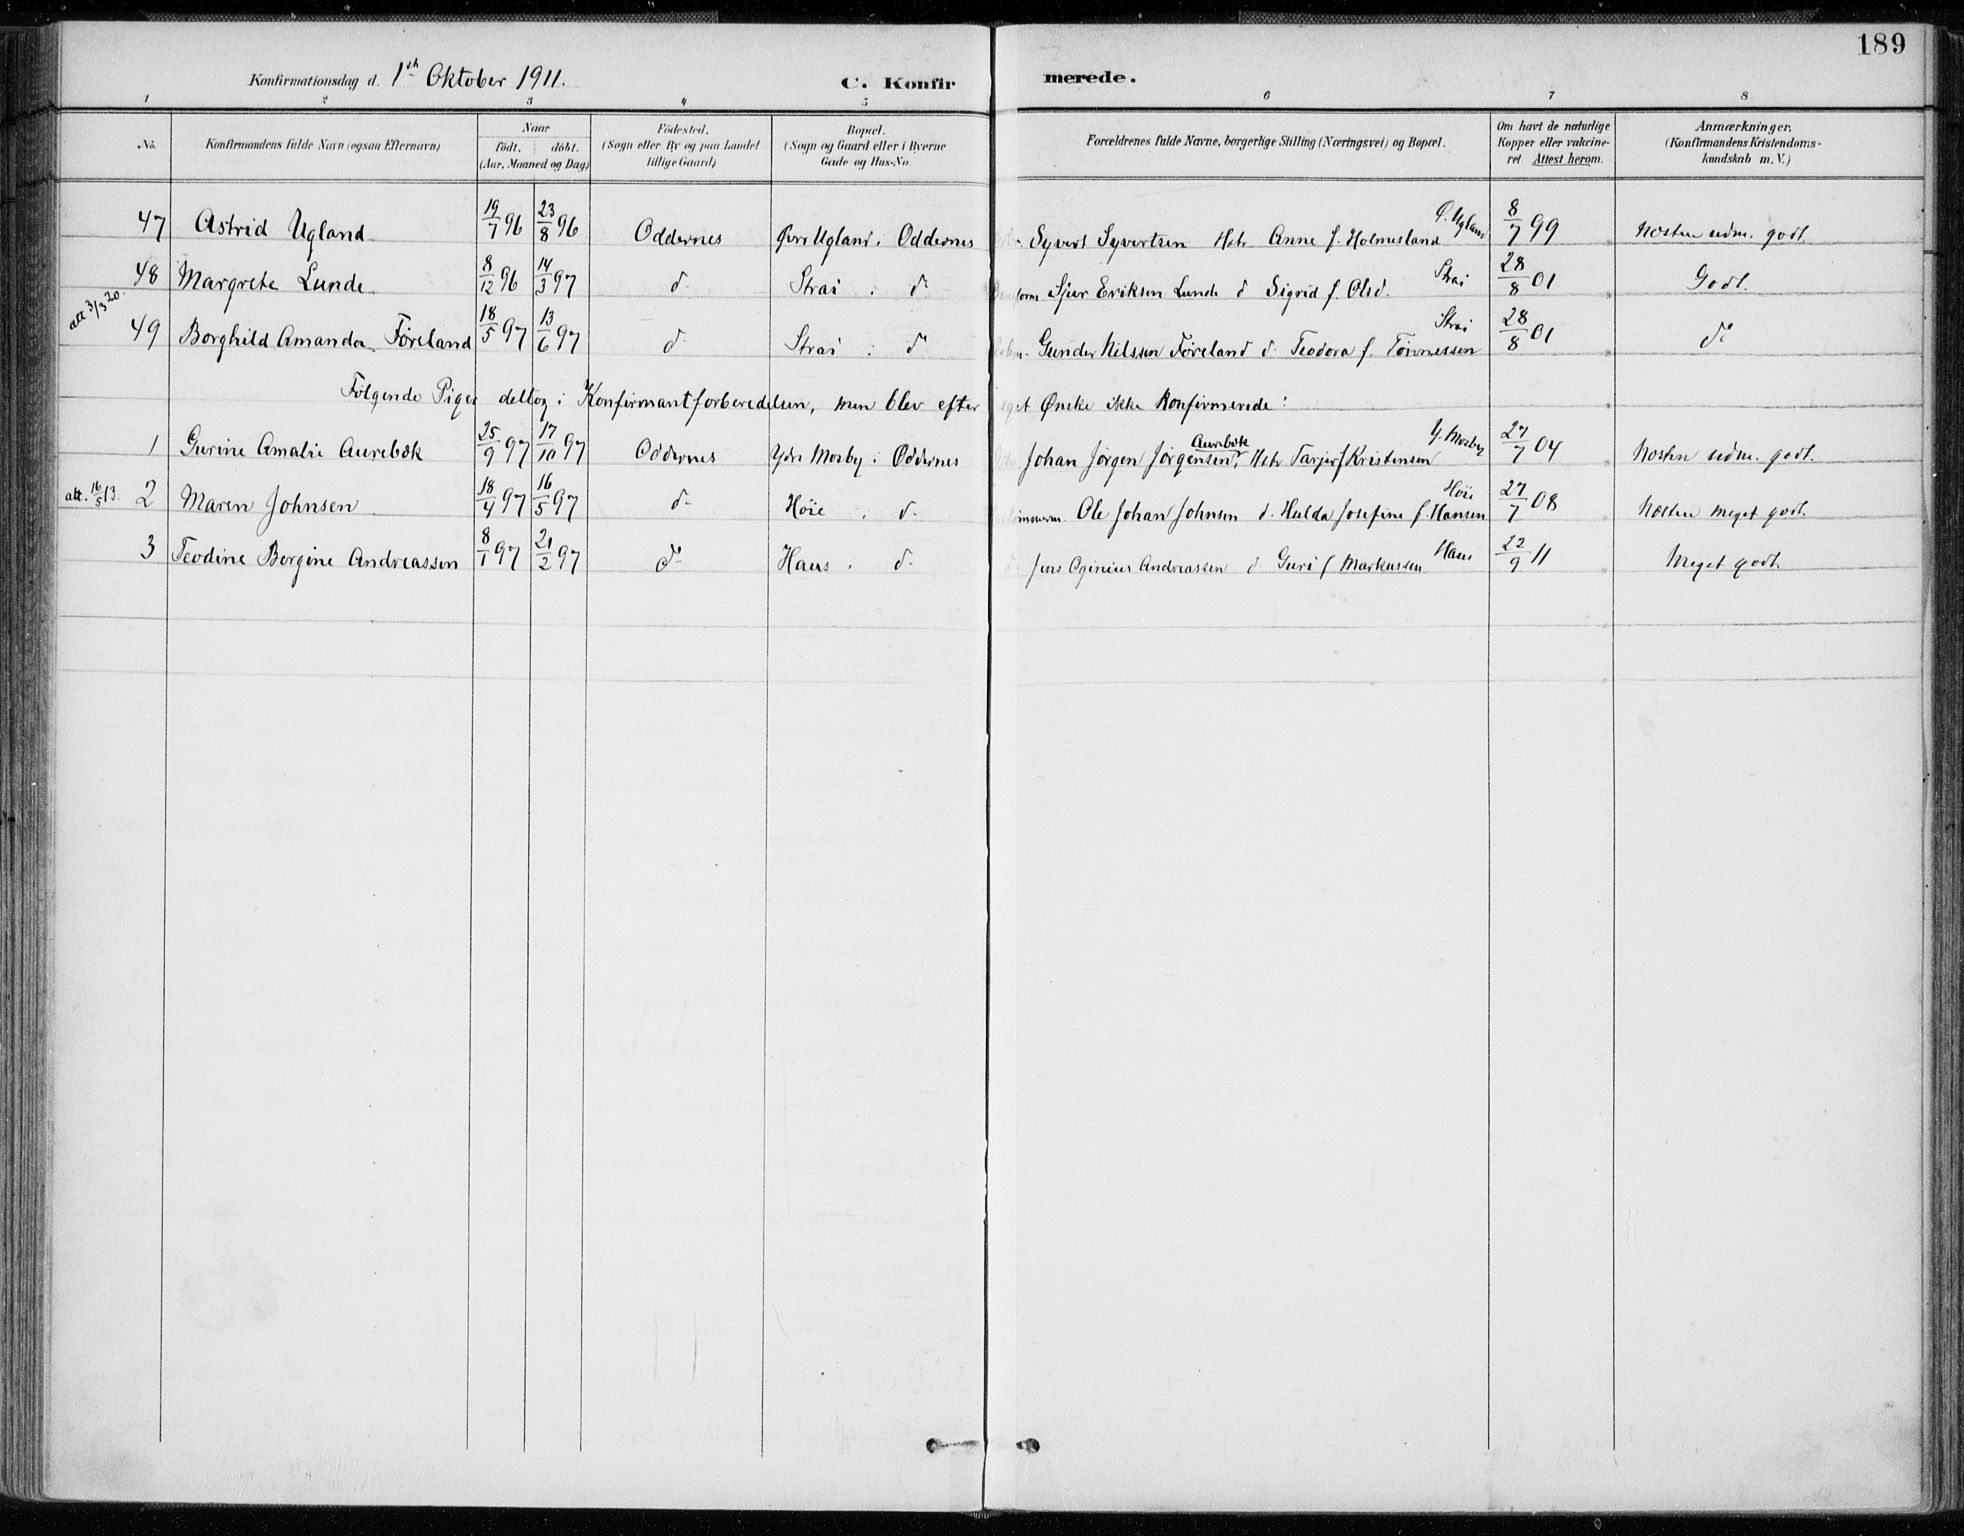 189
Konfirmationsdag d. 1ste Oktober 1911. C. Konfirmerede.
1 2 3 4 5 6 7 8
No. Konfirmandens fulde Navn (ogsaa Efternavn) Naar født. døbt. (Aar, Maaned og Dag) Fødested. (Sogn eller By og paa Landet tillige Gaard) Bopæl. (Sogn og Gaard eller i Byerne Gade og Hus-No. Forældrenes fulde Navne, borgerlige Stilling (Næringsvei) og Bopæl. Om havt de naturlige Kopper eller vakcineret. Attest herom. Anmærkninger. (Konfirmandens Kristendomskundskab m. V.)
47 Astrid Ugland 19/7 96 23/8 96 Oddernes Øvre Ugland i Oddernes Syvert Syvertsen Hstr Anne f. Holmesland Ø. Ugland 8/7 99 Næsten udm. godt.
48 Margrete Lunde 8/12 96 14/3 97 do Strai i do Sjur Eriksen Lunde do Sigrid f. Olsd. Strai 28/8 01 Godt.
att 3/3 20. 49 Borghild Amanda Føreland 18/5 97 13/6 97 do Strai i do Gunder Nilssen Føreland do Teodora f. Tønnessen Strai 28/8 01 do
Følgende Piger deltog i Konfirmantforberedelsen, men blev efter eget Ønske ikke konfirmerede:
1 Gurine Amalie Aurebæk 25/9 97 17/10 97 Oddernes Ydre Mosby i Oddernes Johan Jörgen Jörgensen Aurebæk, Hstr Tarjer f Kristensen Y. Mosby 27/7 04 Næsten udm. godt.
att. 16/5 13. 2 Maren Johnsen 18/4 97 16/5 97 do Höie i do Ole Johan Johnsen do Hulda Josefine f. Hansen Höie 27/7 08 Næsten meget godt.
3 Teodine Bergine Andreassen 8/1 97 21/2 97 do Haus i do Jens Oginius Andreassen do Guri f Markussen Haus 22/9 11 Meget godt.